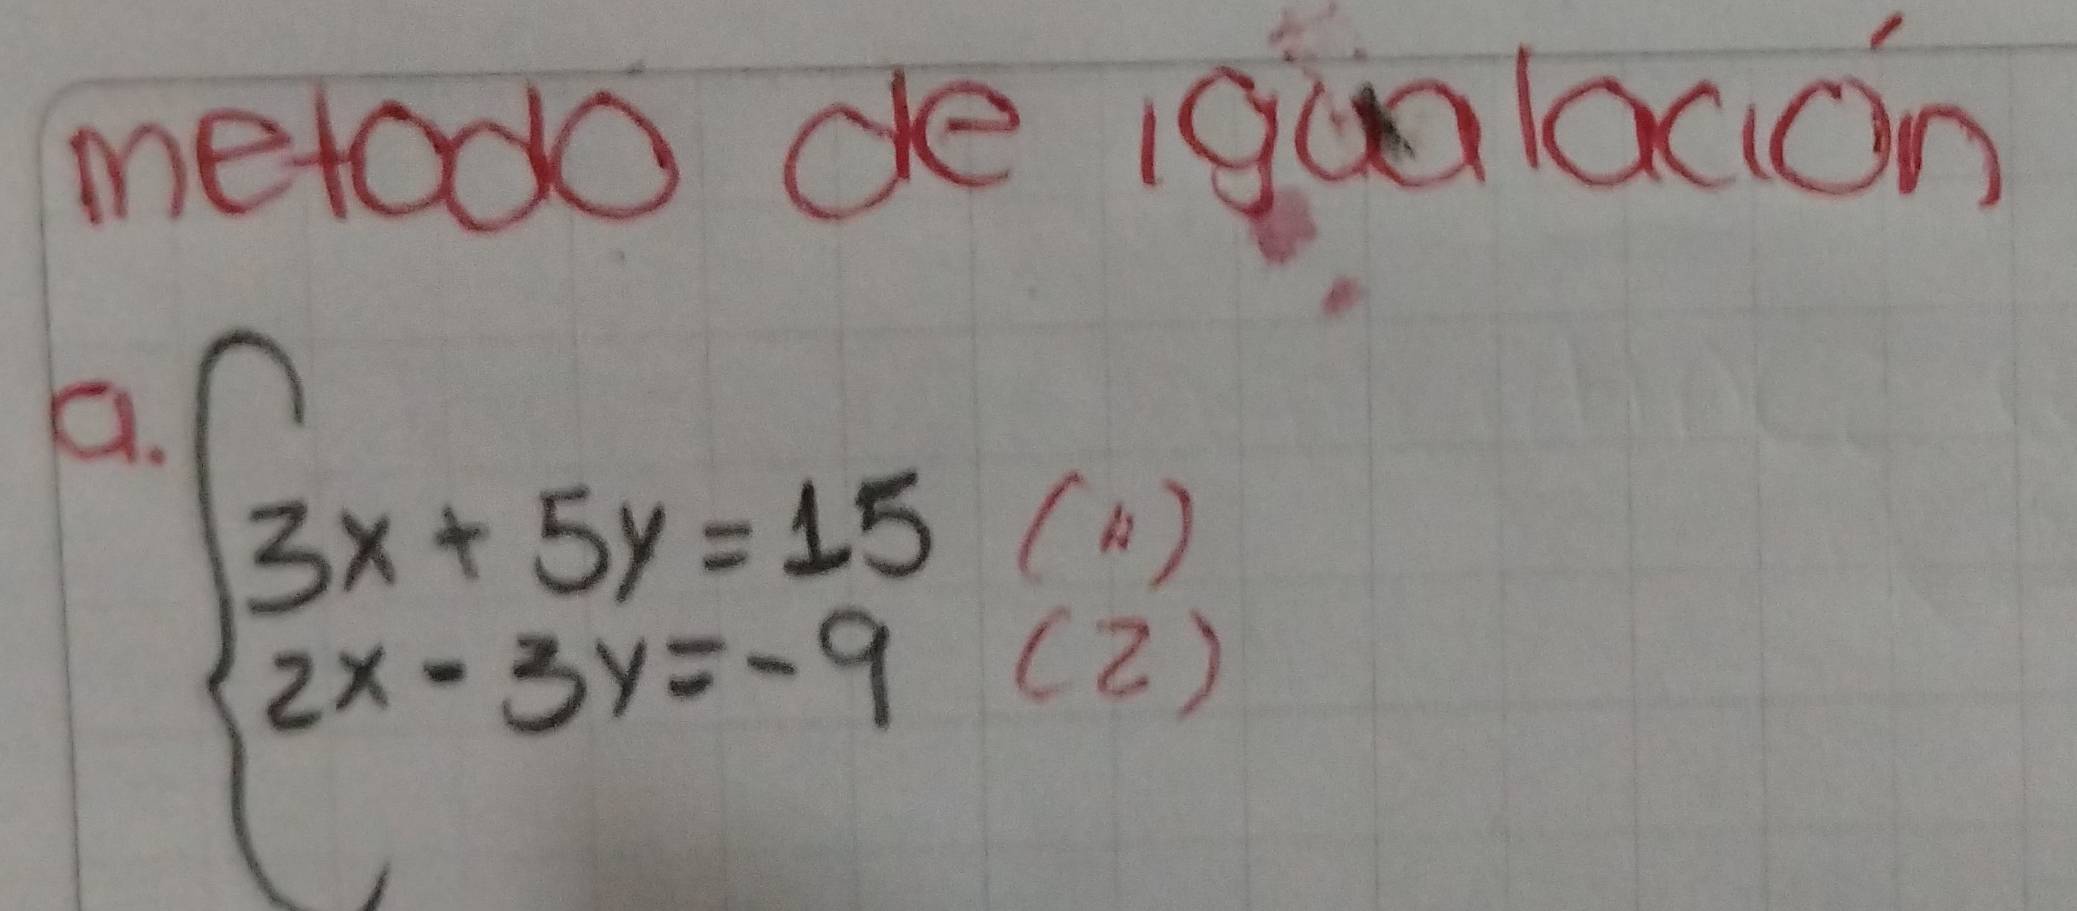 metodo de igualación
a.
3x + 5y = 15 (1)
2x - 3y = -9 (2)